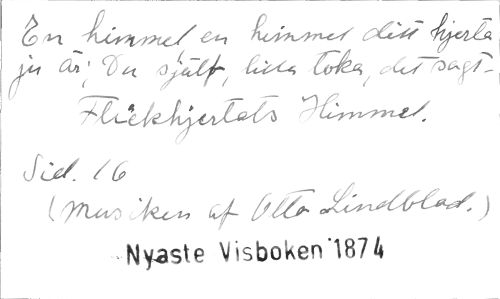 En himmel, en himmel ditt hjerta
ju är; Du sjelf, lilla toka, det sagt-
Flickhjertats Himmel.
Sid. 16
(Musiken af Otto Lindblad.)
Nyaste Visboken 1874